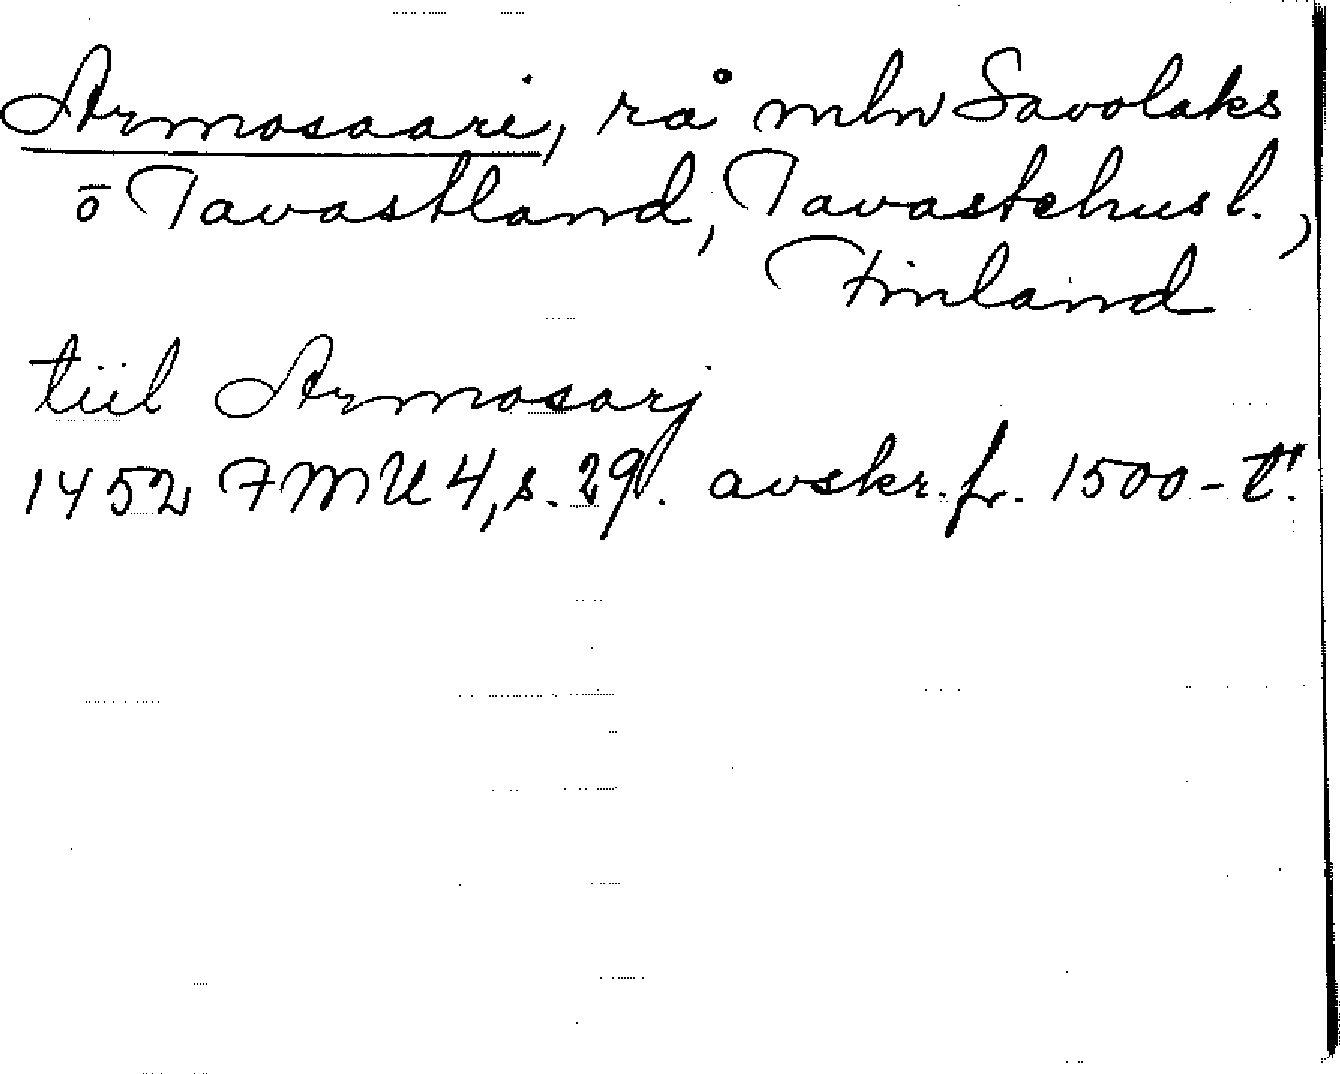 Armosaari, rå mln Savolaks
ō Tavastland, Tavastehus l.,
Finland
tiil Armosarj
1452 FMU 4, s. 29. avskr. fr. 1500-t!